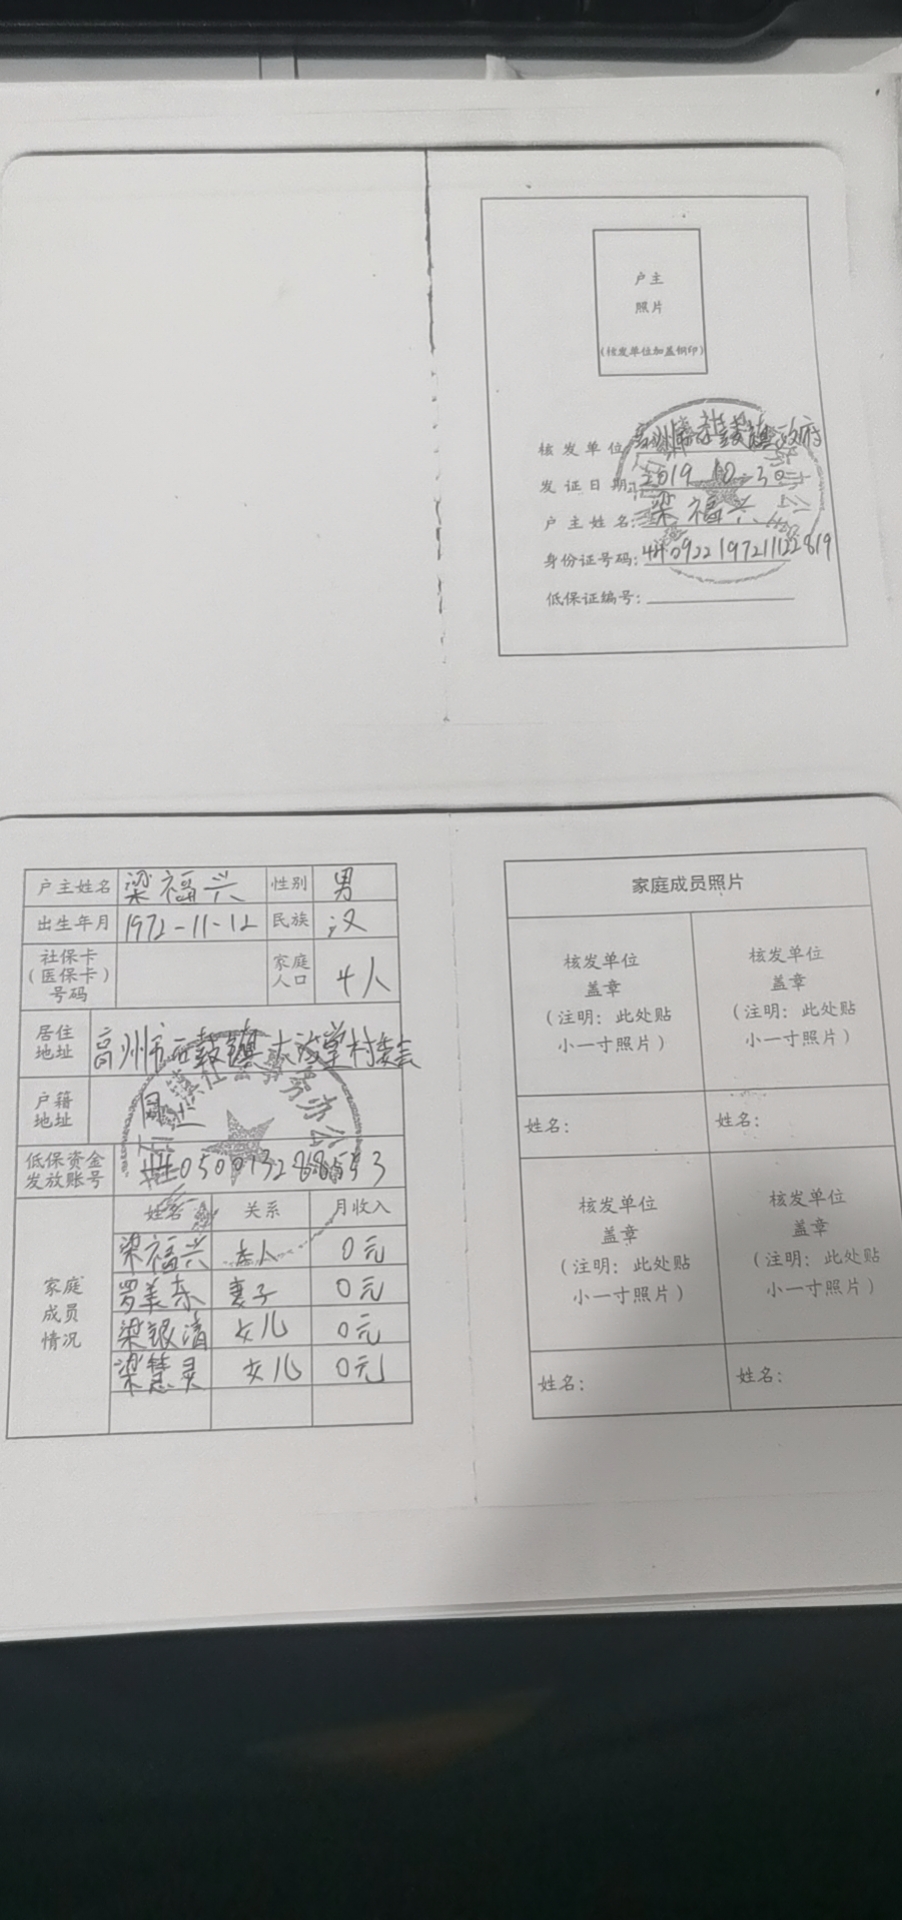 户主
照片
(核发单位加盖钢印)
核发单位 高州市石鼓镇政府
发证日期: 2019.10.30
户主姓名: 梁福兴
身份证号码: 440922197211122819
低保证编号:
户主姓名 梁福兴 性别 男
出生年月 1972-11-12 民族 汉
社保卡
(医保卡)
号码
家庭
人口
4人
居住
地址
高州市石鼓镇 村委会
户籍
地址
同上
低保资金
发放账号
家庭
成员
情况
姓名 关系 月收入
梁福兴 本人 0元
罗美东 妻子 0元
梁银清 女儿 0元
梁慧灵 女儿 0元
家庭成员照片
核发单位
盖章
(注明: 此处贴
小一寸照片)
姓名:
核发单位
盖章
(注明: 此处贴
小一寸照片)
姓名:
核发单位
盖章
(注明: 此处贴
小一寸照片)
姓名:
核发单位
盖章
(注明: 此处贴
小一寸照片)
姓名: